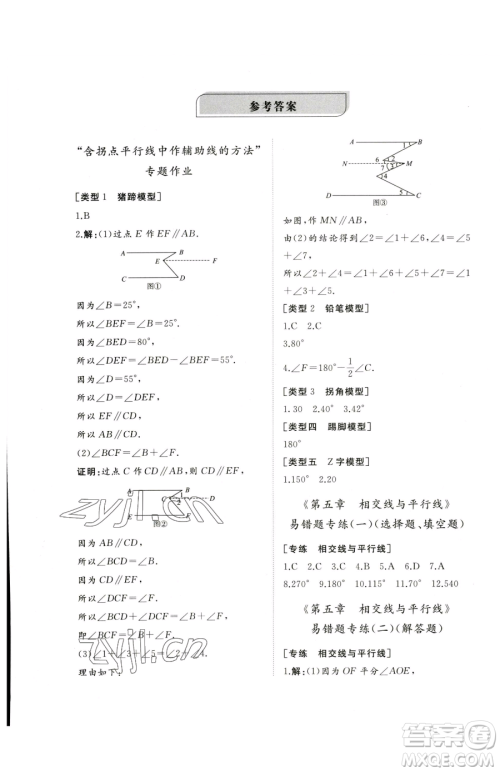 参考答案
“含拐点平行线中作辅助线的方法”
专题作业
[类型1 猪蹄模型]
1.B
2.解:(1)过点 E 作 EF∥AB.
A
B
E
F
C
D
图①
因为∠B=25°,
所以∠BEF=∠B=25°.
因为∠BED=80°,
所以∠DEF=∠BED-∠BEF=55°.
因为∠D=55°,
所以∠D=∠DEF.
所以 EF∥CD.
所以 AB∥CD.
(2)∠BCF=∠B+∠F.
证明:过点 C 作 CD∥AB,
A
B
图②
因为 AB∥EF,
所以 CD∥EF.
所以∠DCF=∠F.
因为 CD∥AB,
所以∠BCD=∠B.
所以∠BCD+∠DCF=∠B+∠F,
即∠BCF=∠B+∠F.
理由如下:
A
B
N
M
6
2
7
3
4
5
D
C
图③
如图,作 MN∥AB,
由(2)的结论得到∠2=∠1+∠6,
∠4=∠5+∠7,
因为∠3=∠6+∠7,
所以∠2+∠4=∠1+∠6+∠5+∠7
=∠1+∠3+∠5.
[类型2 铅笔模型]
1.C 2.C
3.80°
4.∠F=180°-1/2∠C.
[类型3 拐角模型]
1.30 2.40° 3.42°
[类型四 踢脚模型]
180°
[类型五 Z字模型]
1.150° 2.20
《第五章 相交线与平行线》
易错题专练(一)(选择题、填空题)
[专练 相交线与平行线]
1.C 2.C 3.B 4.B 5.A 6.D 7.A
8.270° 9.180° 10.115° 11.70° 12.540
《第五章 相交线与平行线》
易错题专练(二)(解答题)
[专练 相交线与平行线]
1.解:(1)因为 OF 平分∠AOE,
zyjl.cn
zyjl.cn
答案圈
MXQE.COM